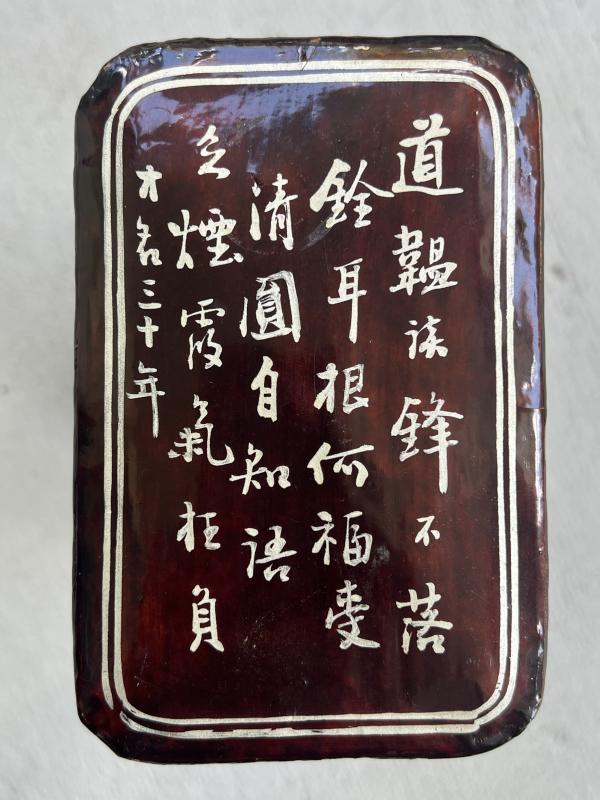 道韞談鋒不落
銓耳根何福受
清圓自知語
乏煙霞氣枉負
才名三十年